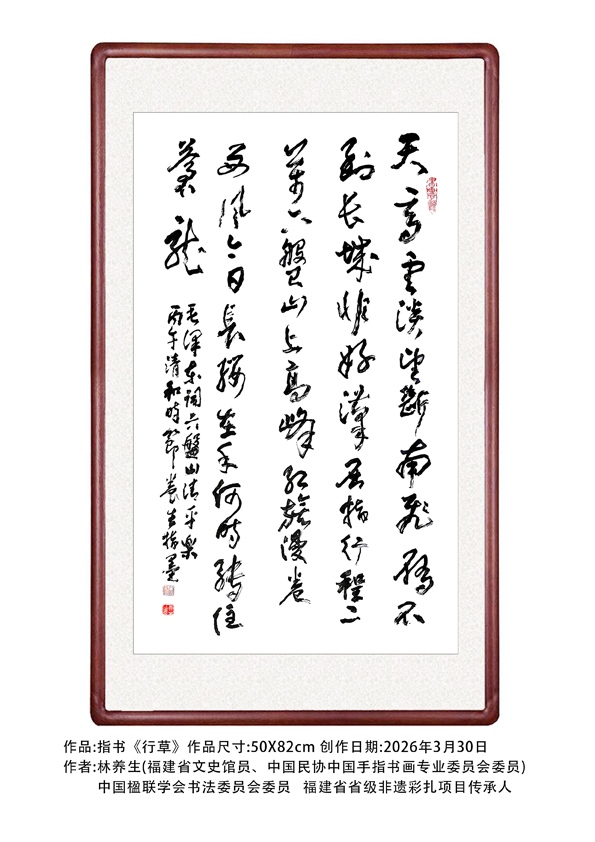 天高雲淡望斷南飛雁不
到長城非好漢屈指行程二
萬六般山上高峰紅旗漫卷
西風今日長纓在手何時縛住
蒼龍
毛澤東詞六盤山清平樂
丙午清和時節養生指墨
作品:指书《行草》作品尺寸:50X82cm 创作日期:2026年3月30日
作者:林养生(福建省文史馆员、中国民协中国手指书画专业委员会委员)
中国楹联学会书法委员会委员 福建省省级非遗彩扎项目传承人